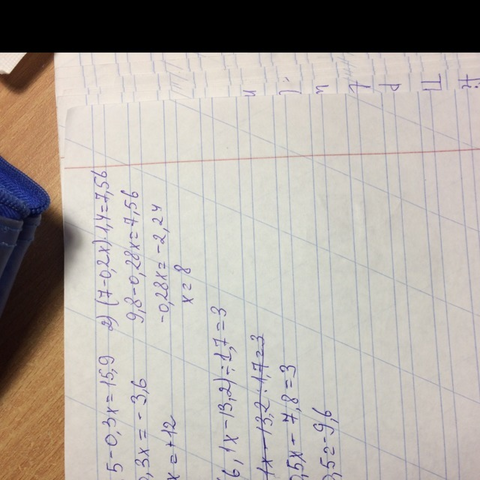 5-0,3x=15,9 2) (7-0,2x)·1,4=7,56
0,3x=-3,6 9,8-0,28x=7,56
x=+12 -0,28x=-2,24
x=8
6,1x-13,2):1,7=3
1x-13,2:1,7=3
0,5x-7,8=3
0,5=-9,6